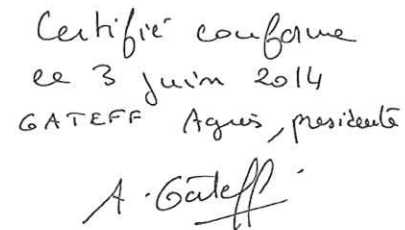 Certifié conforme
le 3 juin 2014
GATEFF Agnès, présidente
A. Gateff